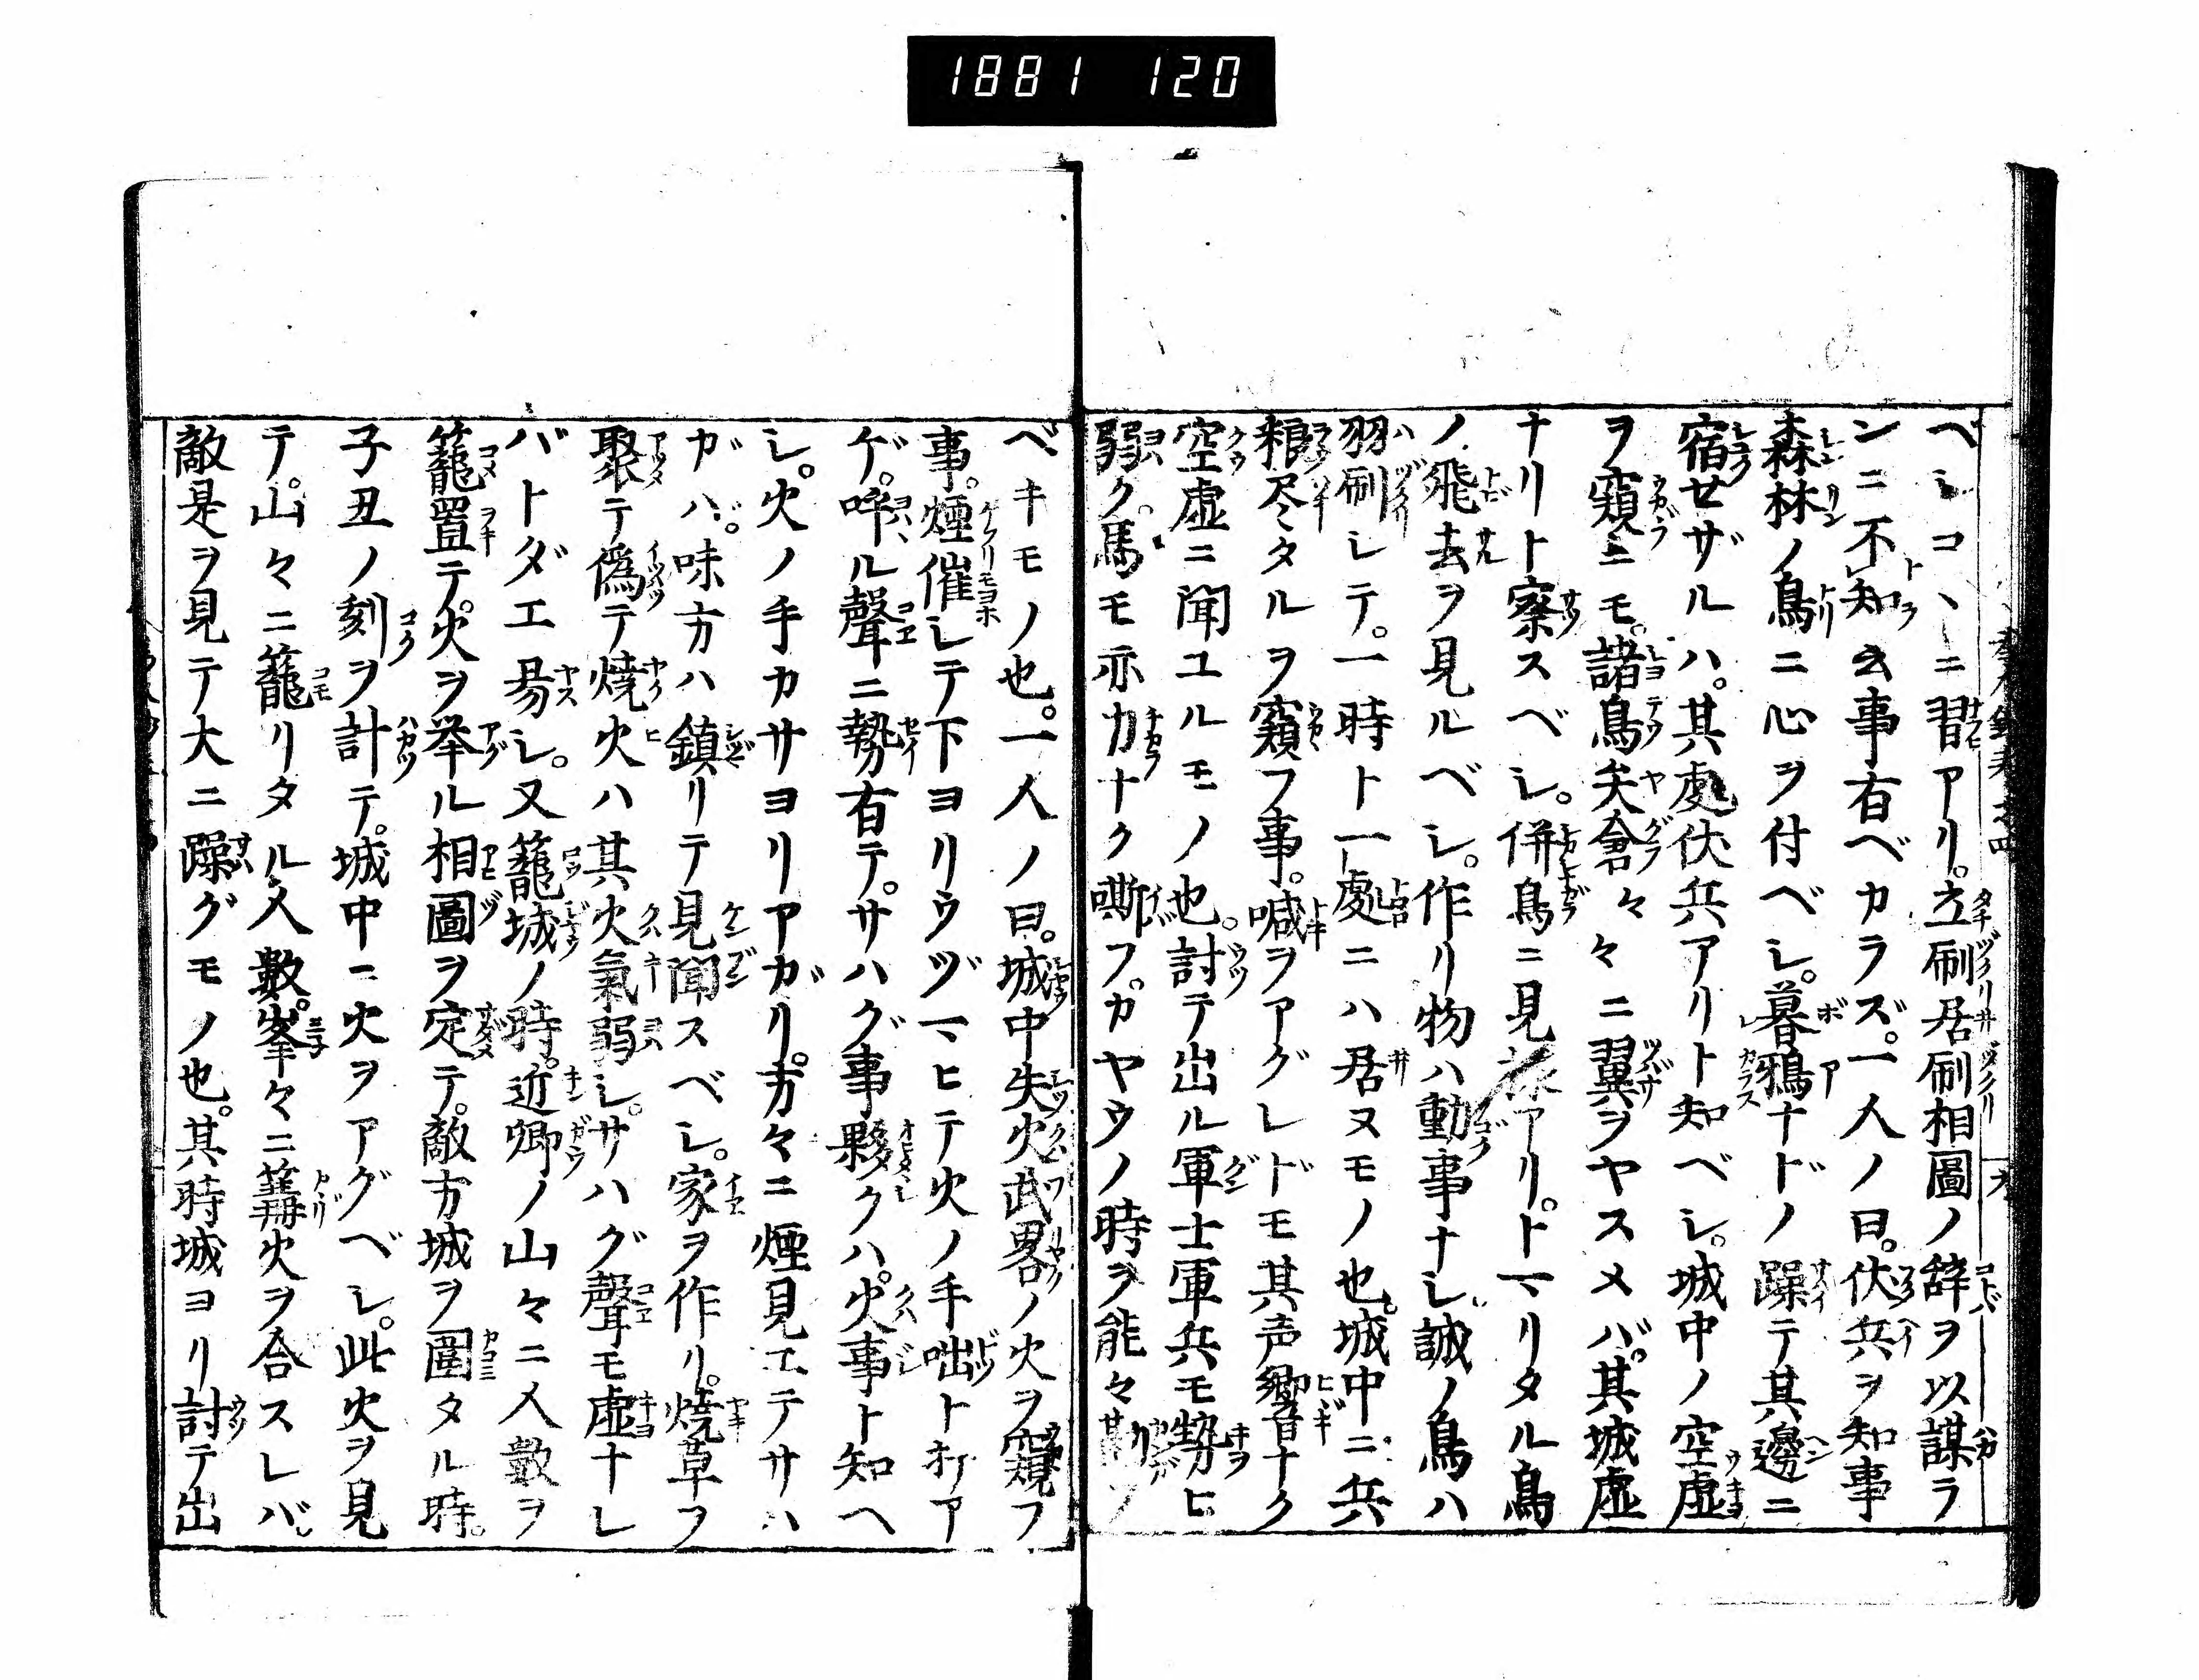 1881 120
ベシコヽニ習アリ。立刷居刷相圖ノ辞ヲ以謀ラ
ンニ不知云事有ベカラズ。一人ノ曰。伏兵ヲ知事
森林ノ鳥ニ心ヲ付ベシ。暮鴉ナドノ躁テ其邊ニ
宿セザルハ。其處伏兵アリト知ベシ。城中ノ空虚
ヲ窺ニモ。諸鳥矢倉々々ニ翼ヲヤスメバ。其城虚
ナリト察スベシ。併鳥ニ見アリ。トマリタル鳥
ノ飛去ヲ見ルベシ。作リ物ハ動事ナシ。誠ノ鳥ハ
羽刷シテ。一時ト一處ニハ居ヌモノ也。城中ニ兵
粮尽タルヲ窺フ事。喊ヲアグレドモ其声響音ナク
空虚ニ聞ユルモノ也。討テ出ル軍士軍兵モ勢ヒ
弱ク。馬モ亦力ナク嘶フ。カヤウノ時ヲ能々斟フ
ベキモノ也。一人ノ曰。城中失火武畧ノ火ヲ窺フ
事。煙催シテ下ヨリウヅマヒテ火ノ手咄トオヿア
ゲ。呼ル聲ニ勢有テ。サハグ事夥クハ。火事ト知ヘ
シ。火ノ手カサヨリアガリ。方々ニ煙見エテサハ
ガハ。味方ハ鎮リテ見聞スベシ。家ヲ作リ。焼草フ
聚テ偽テ焼火ハ其火氣弱シ。サハグ聲モ虚ナレ
バトダエ易シ。又籠城ノ時。近郷ノ山々ニ人數ヲ
籠置テ。火ヲ挙ル相圖ヲ定テ。敵方城ヲ圍タル時。
子丑ノ刻ヲ計テ。城中ニ火ヲアグベシ。此火ヲ見
テ。山々ニ籠リタル人數。峯々ニ篝火ヲ合スレバ。
敵是ヲ見テ大ニ躁グモノ也。其時城ヨリ討テ出